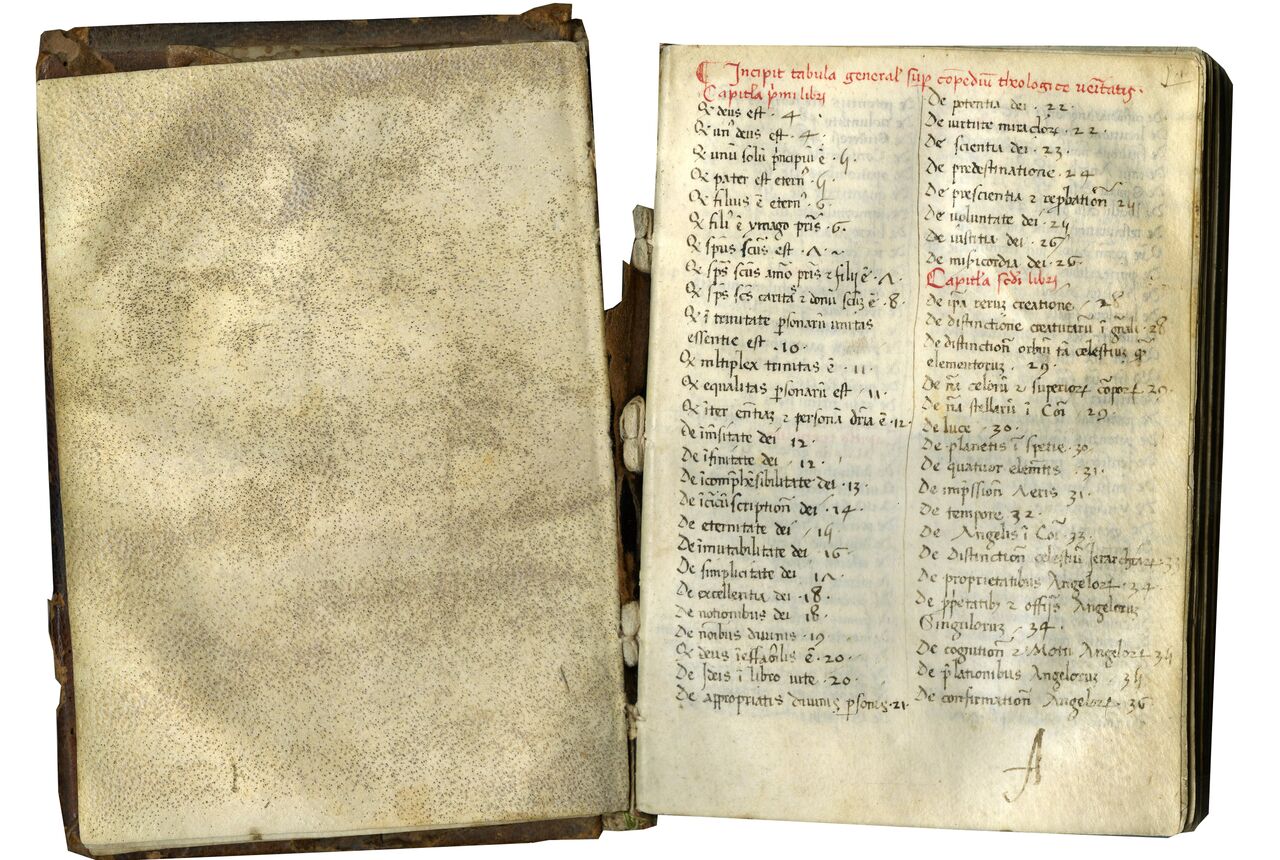 Incipit tabula general' sup cōpediū theologice ueritatis.
Capitl'a p̄mi libri
Q deus est . 4
Q un' deus est . 4 .
Q unū solū p̄ncipiū ē . 5
Q pater est etern' . 5
Q filius ē etern' . 6 .
Q fili' ē ymago pr̄is . 6 .
Q sp̄us sc̄us est . 7 .
Q sp̄s sc̄us amō pr̄is ⁊ filij ē . 7
Q sp̄s sc̄s caritā ⁊ donū ē . 8 .
Q ī trinitate p̄sonarū unitas
essentie est . 10 .
Q mltiplex trinitas ē . 11 .
Q equalitas p̄sonarū est . 11 .
Q īter ⁊ personā dr̄ia ē . 12
De īm̄sitate dei 12 .
De īfinitate dei . 12 .
De īcomp̄hēsibilitate dei . 13 .
De īcīcūscription̄ dei . 14 .
De eternitate dei 15
De īmutabilitate dei . 16 .
De simplicitate dei 17 .
De excellentia dei . 18 .
De notionibus dei 18 .
De noībus diuinis . 19
Q deus īeffabilis ē . 20 .
De Ideis ī libro uite . 20 .
De appropriatis diuinis p̄sonis . 21
De potentia dei . 22 .
De uirtute miraclor̄ . 22 .
De scientia dei . 23 .
De predestinatione . 24
De prescientia ⁊ rep̄bation̄ 25
De uoluntate dei . 25
De iustitia dei . 26
De misericordia dei . 26 .
Capitl'a sc̄di libri
De ip̄a rerum creatione 28
De distinctione creaturarū ī gn̄ali . 28
De distinction̄ orbiū tā celestium q̄
elementorum . 29 .
De nā celorū ⁊ superior̄ corpor̄
De nā stellarū ī Cōi 29 .
De luce . 30 .
De planetis ī sperie . 30 .
De quatuor elemētis . 31 .
De imp̄ssion̄ Aeris 31 .
De tempore 32 .
De Angelis ī Cōi . 33 .
De Distinction̄ celestiū Jerarchiar̄ . 33
De proprietatibus Angelor̄ . 34
De p̄p̄etatib; ⁊ offijs Angelorum
Singulorum . 34 .
De cognition̄ ⁊ Motu Angelor̄ . 35
De p̄lationibus Angelorum . 35
De confirmation̄ Angelor̄ . 36
A